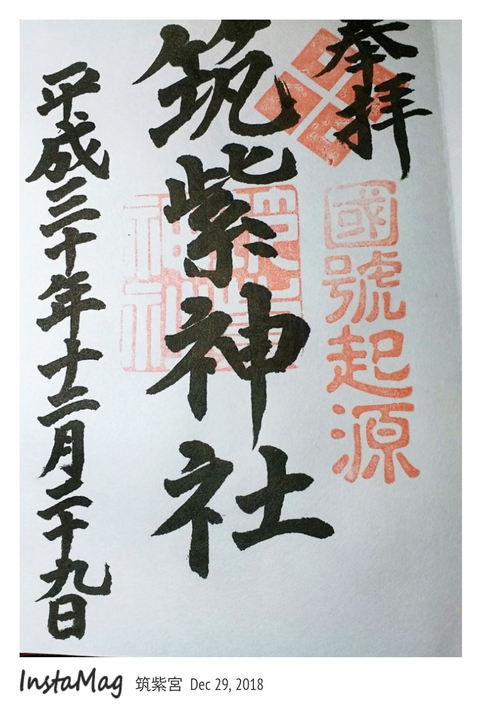 奉拝
國號起源
筑紫神社
平成三十年十二月二十九日
InstaMag 筑紫宮 Dec 29, 2018